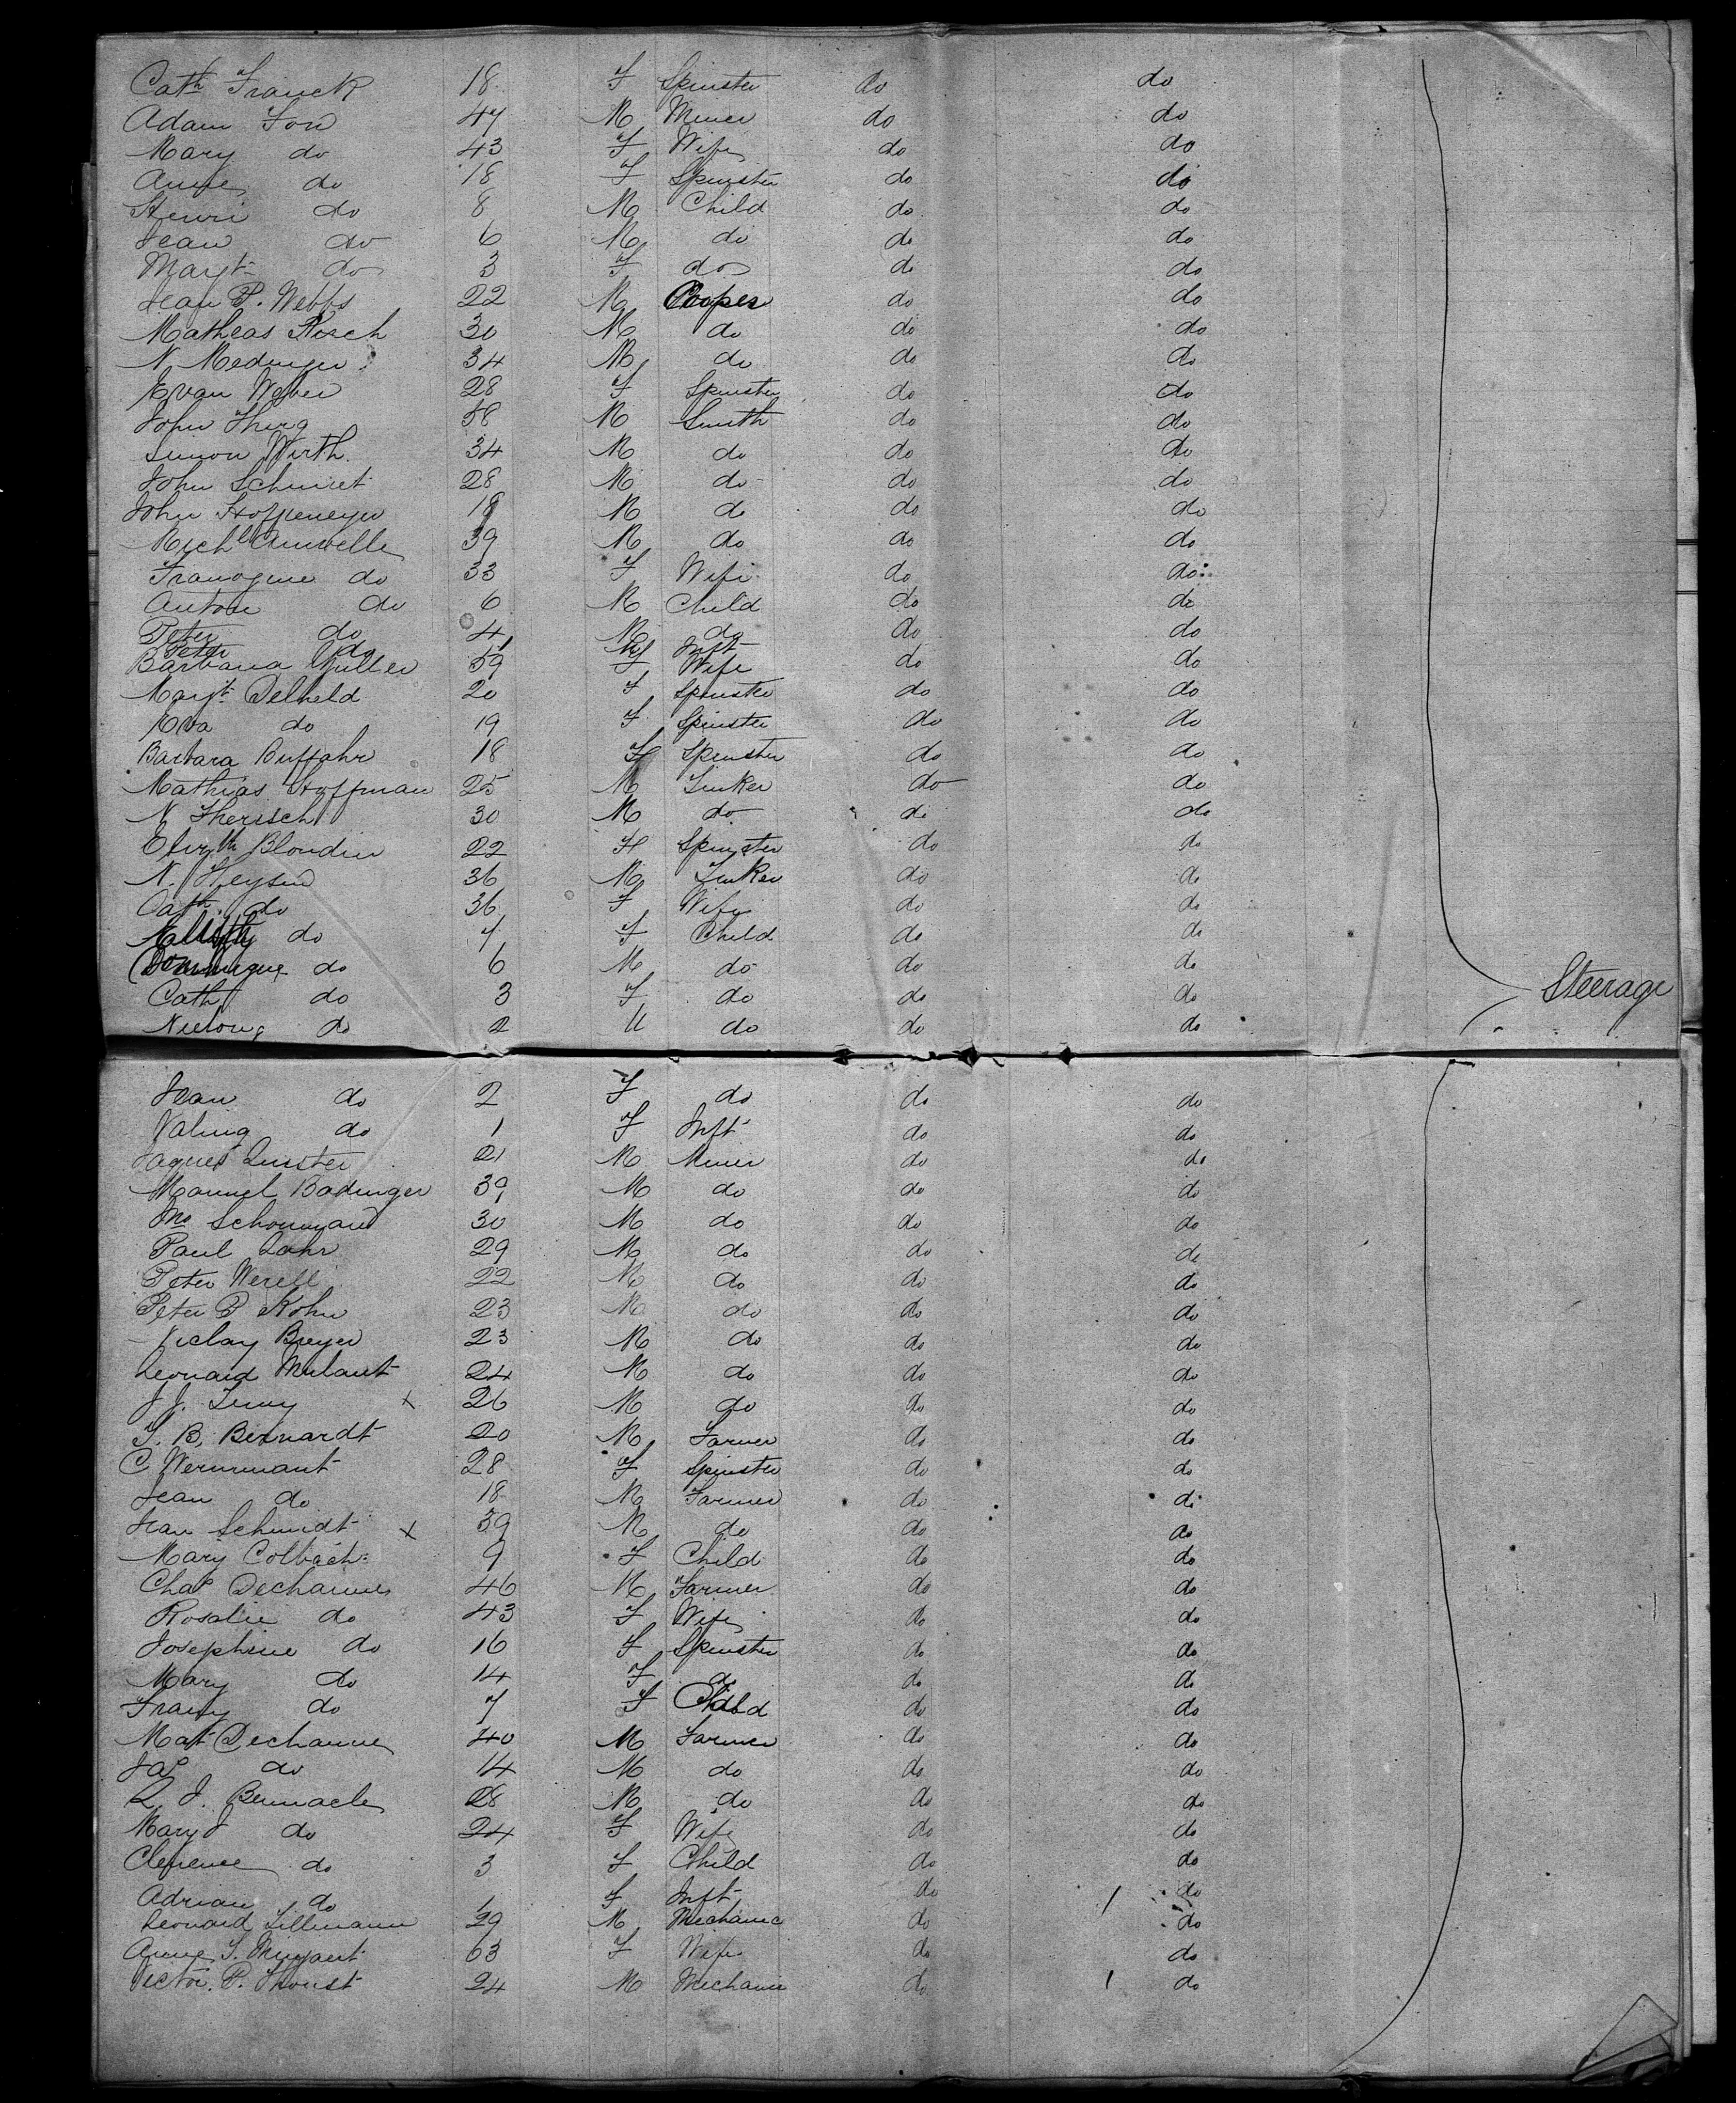 Cath Franck 18 F Spinster do do
Adam Fon 47 M Miner do do
Mary do 43 F Wife do do
Anne do 18 F Spinster do do
Henri do 8 M Child do do
Jean do 6 M do do do
Margt do 3 F do do do
Jean P. Webbs 22 M Cooper do do
Matheas Rosch 30 M do do do
N. Medinger 34 M do do do
Evan Weber 28 F Spinster do do
John Therg 58 M Smith do do
Simon Wirth. 34 M do do do
John Schmiet 28 M do do do
John Hoffemeyer 18 M do do do
Michl 39 M do do do
do 33 F Wife do do
Anton do 6 M Child do do
Peter do 4 M do do do
Peter do 1 M Inft
Barbara Muller 59 F Wife do do
Margt Delheld 20 F Spinster do do
Eva do 19 F Spinster do do
Barbara Buffahr 18 F Spinster do do
Mathias Hoffman 25 M Tinker do do
N Therisch 30 M do do do
Elizth Blondin 22 F Spinster do do
N. Heysen 36 M Tinker do do
Cath do 36 F Wife do do
do 7 F Child do do
Dominique do 6 M do do do
Cath do 3 F do do do
Steerage
do 2 M do do do
Jean do 2 F do do do
Valing do 1 F Inft do do
Jaques Quister 21 M Miner do do
Manuel Badinger 39 M do do do
Schoumann 30 M do do do
Paul Lahr 29 M do do do
Peter Werell 22 M do do do
Peter P Kohn 23 M do do do
Niclay Breyer 23 M do do do
Leonard Mulant 24 M do do do
J. J. x 26 M do do do
T. B. Bernardt 20 M Farmer do do
C Wernimant 28 F Spinster do do
Jean do 18 M Farmer do do
Jean Schmidt x 39 M do do do
Mary Colbach 9 F Child do do
Chas Dechanne 46 M Farmer do do
Rosalie do 43 F Wife do do
Josephine do 16 F Spinster do do
Mary do 14 F do do do
Frany do 7 F Child do do
Mat Dechanne 40 M Farmer do do
Jas do 14 M do do do
J. Bernacle 28 M do do do
Mary J do 24 F Wife do do
Clemence do 3 F Child do do
Adrian do 1 F Inft do do
Leonard Tillmann 29 M Mechanic do do
Anne T. 63 F Wife do do
Victor. P. Thonst 24 M Mechanic do do